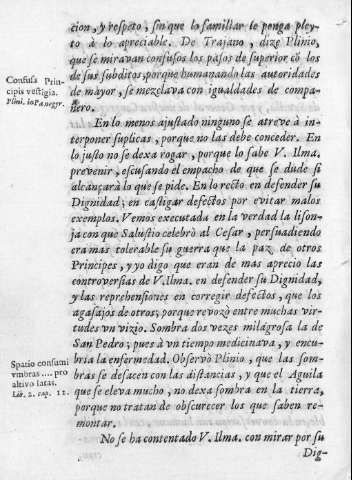 cion, y respeto, sin que lo familiar le ponga pley-
to à lo apreciable. De Trajano, dize Plinio,
que se miravan confusos los pasos de superior cõ los
de sus subditos, porque humanando las autoridades
de mayor, se mezclava con igualdades de compa-
ñero.
Confusa Prin-
cipis vestigia.
Plini. in Panegyr.
En lo menos ajustado ninguno se atreve à in-
terponer suplicas, porque no las debe conceder. En
lo justo no se dexa rogar, porque lo sabe V. Ilma.
prevenir, escusando el empacho de que se dude si
alcançarà lo que se pide. En lo recto en defender su
Dignidad; en castigar defectos por evitar malos
exemplos. Vemos executada en la verdad la lison-
ja con que Salustio celebrò al Cesar, persuadiendo
era mas tolerable su guerra que la paz de otros
Principes, y yo digo que eran de mas aprecio las
controversias de V. Ilma. en defender su Dignidad,
y las reprehensiones en corregir defectos, que los
agasajos de otros; porque revozò entre muchas vir-
tudes vn vizio. Sombra dos vezes milagrosa la de
San Pedro; pues à vn tiempo medicinava, y encu-
bria la enfermedad. Observò Plinio, que las som-
bras se desacen con las distancias, y que el Aguila
que se eleva mucho, no dexa sombra en la tierra,
porque no tratan de obscurecer los que saben re-
montar.
Spatio consumi
vmbras .... pro
altivo latas.
Lib. 2. cap. 11.
No se ha contentado V. Ilma. con mirar por su
Dig-